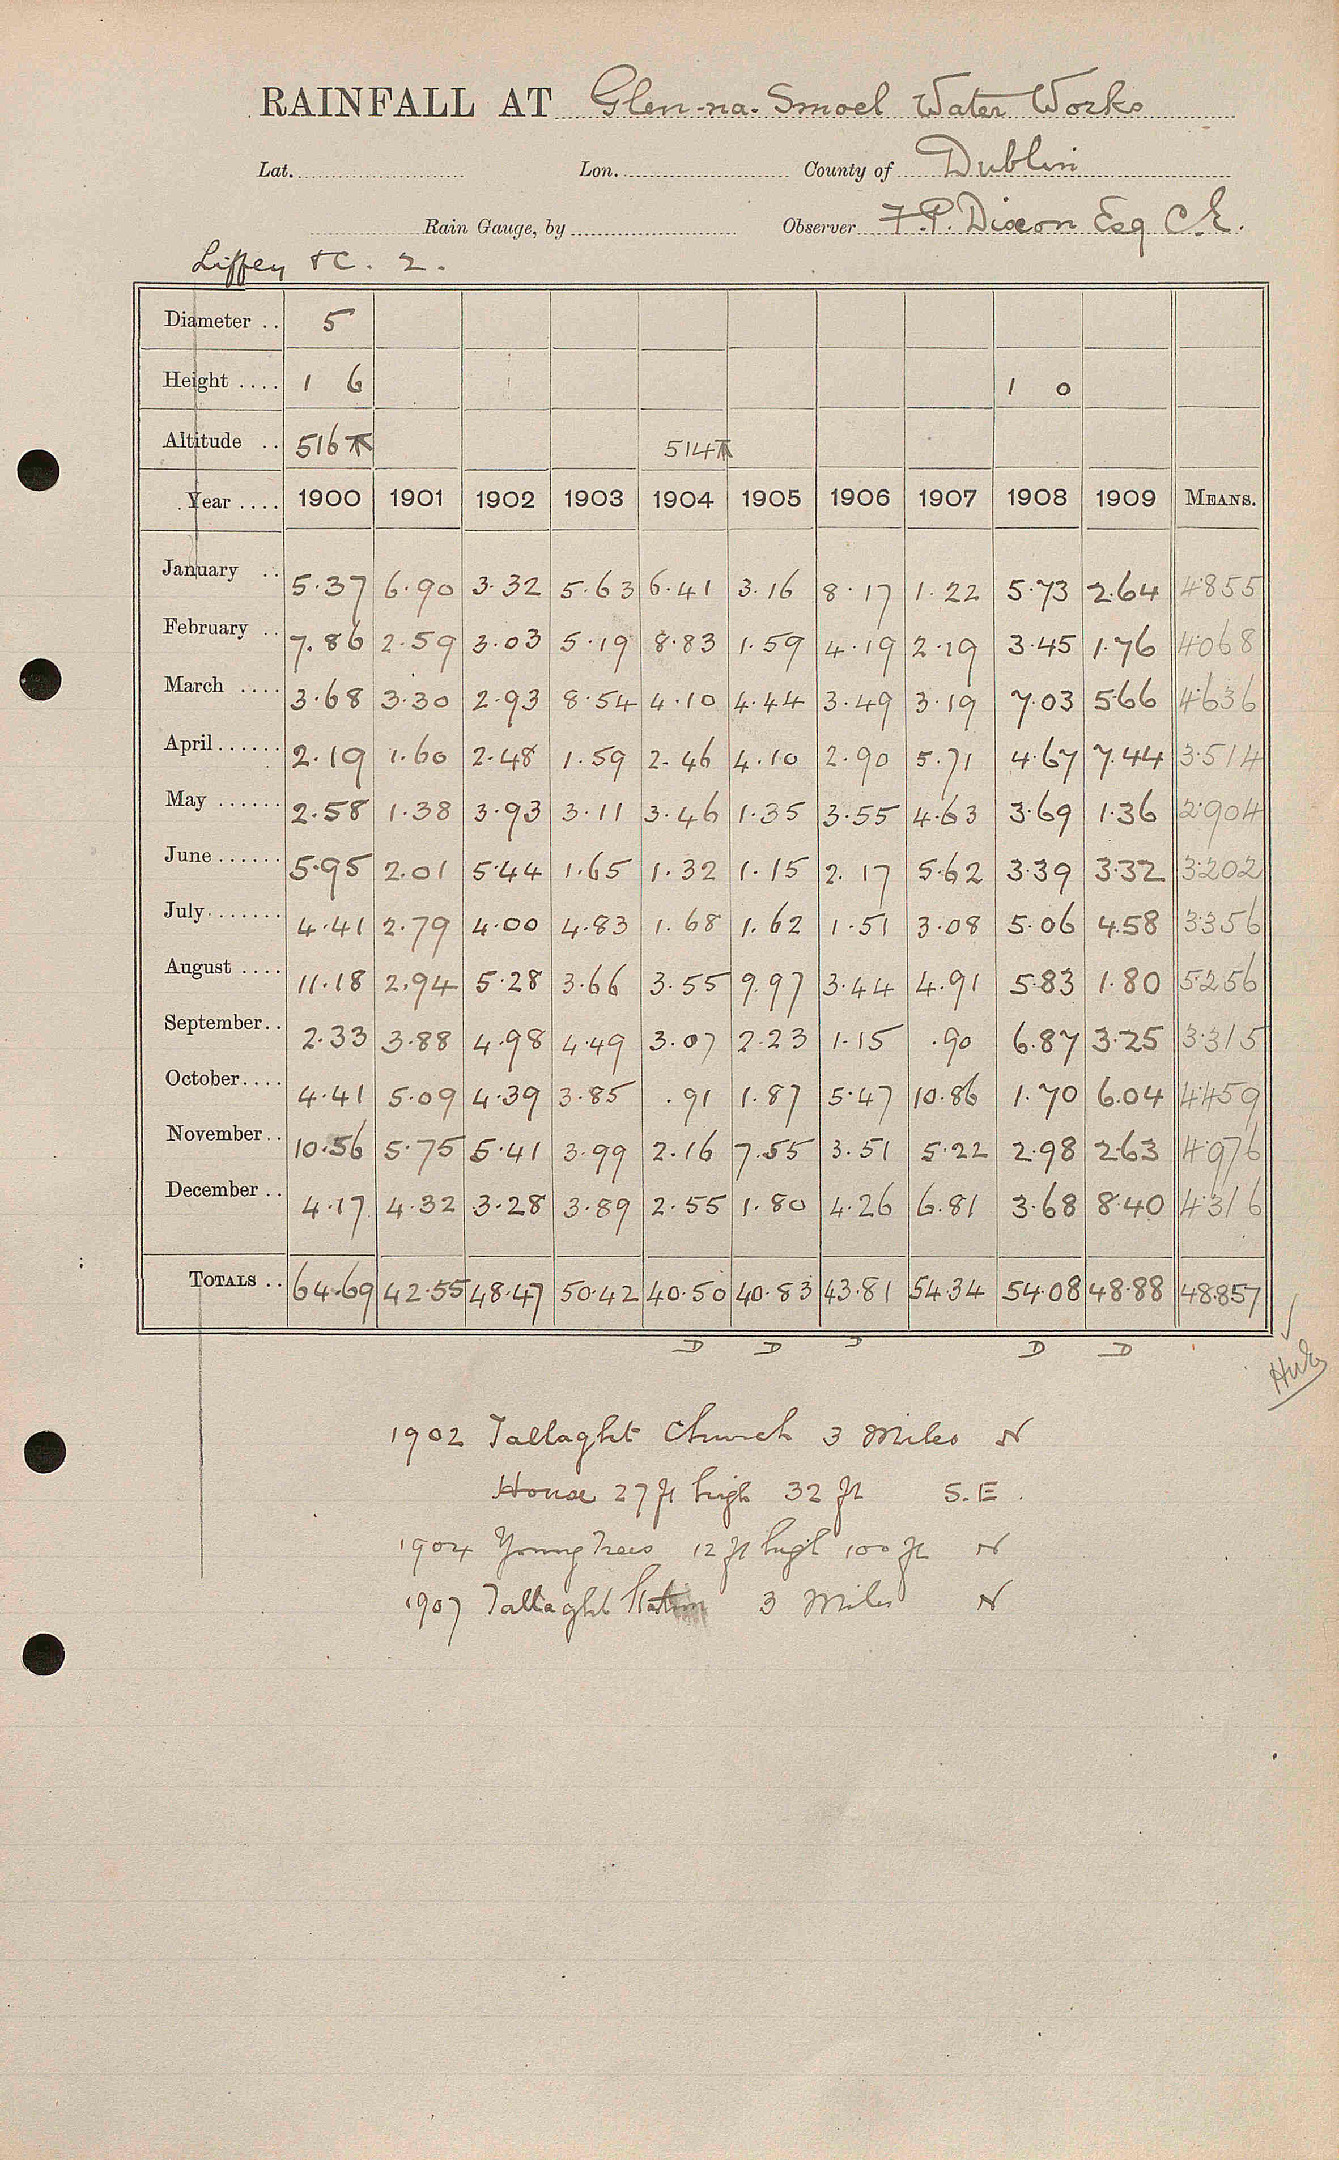 RAINFALL AT Glen-na-Smoel Water Works
Lat. Lon. County of Dublin
Rain Gauge, by Observer F.P. Dixon Esq C.E.
Liffey &C. 2.
Diameter .. 5
Height .... 1 6 1 0
Altitude .. 516 514
Year .... 1900 1901 1902 1903 1904 1905 1906 1907 1908 1909 MEANS.
January .. 5.37 6.90 3.32 5.63 6.41 3.16 8.17 1.22 5.73 2.64 4.855
February .. 7.86 2.59 3.03 5.19 8.83 1.59 4.19 2.19 3.45 1.76 4.068
March .... 3.68 3.30 2.93 8.54 4.10 4.44 3.49 3.19 7.03 5.66 4.636
April ...... 2.19 1.60 2.48 1.59 2.46 4.10 2.90 5.71 4.67 7.44 3.514
May ...... 2.58 1.38 3.93 3.11 3.46 1.35 3.55 4.63 3.69 1.36 2.904
June ...... 5.95 2.01 5.44 1.65 1.32 1.15 2.17 5.62 3.39 3.32 3.202
July ....... 4.41 2.79 4.00 4.83 1.68 1.62 1.51 3.08 5.06 4.58 3.356
August .... 11.18 2.94 5.28 3.66 3.55 9.97 3.44 4.91 5.83 1.80 5.256
September.. 2.33 3.88 4.98 4.49 3.07 2.23 1.15 .90 6.87 3.25 3.315
October.... 4.41 5.09 4.39 3.85 .91 1.87 5.47 10.86 1.70 6.04 4.459
November.. 10.56 5.75 5.41 3.99 2.16 7.55 3.51 5.22 2.98 2.63 4.976
December .. 4.17 4.32 3.28 3.89 2.55 1.80 4.26 6.81 3.68 8.40 4.316
TOTALS .. 64.69 42.55 48.47 50.42 40.50 40.83 43.81 54.34 54.08 48.88 48.857
D D D D D
1902 Tallaght Church 3 Miles N
House 27 ft high 32 ft S.E.
1904 Young Trees 12 ft high 100 ft N
1907 Tallaght Station 3 Miles N